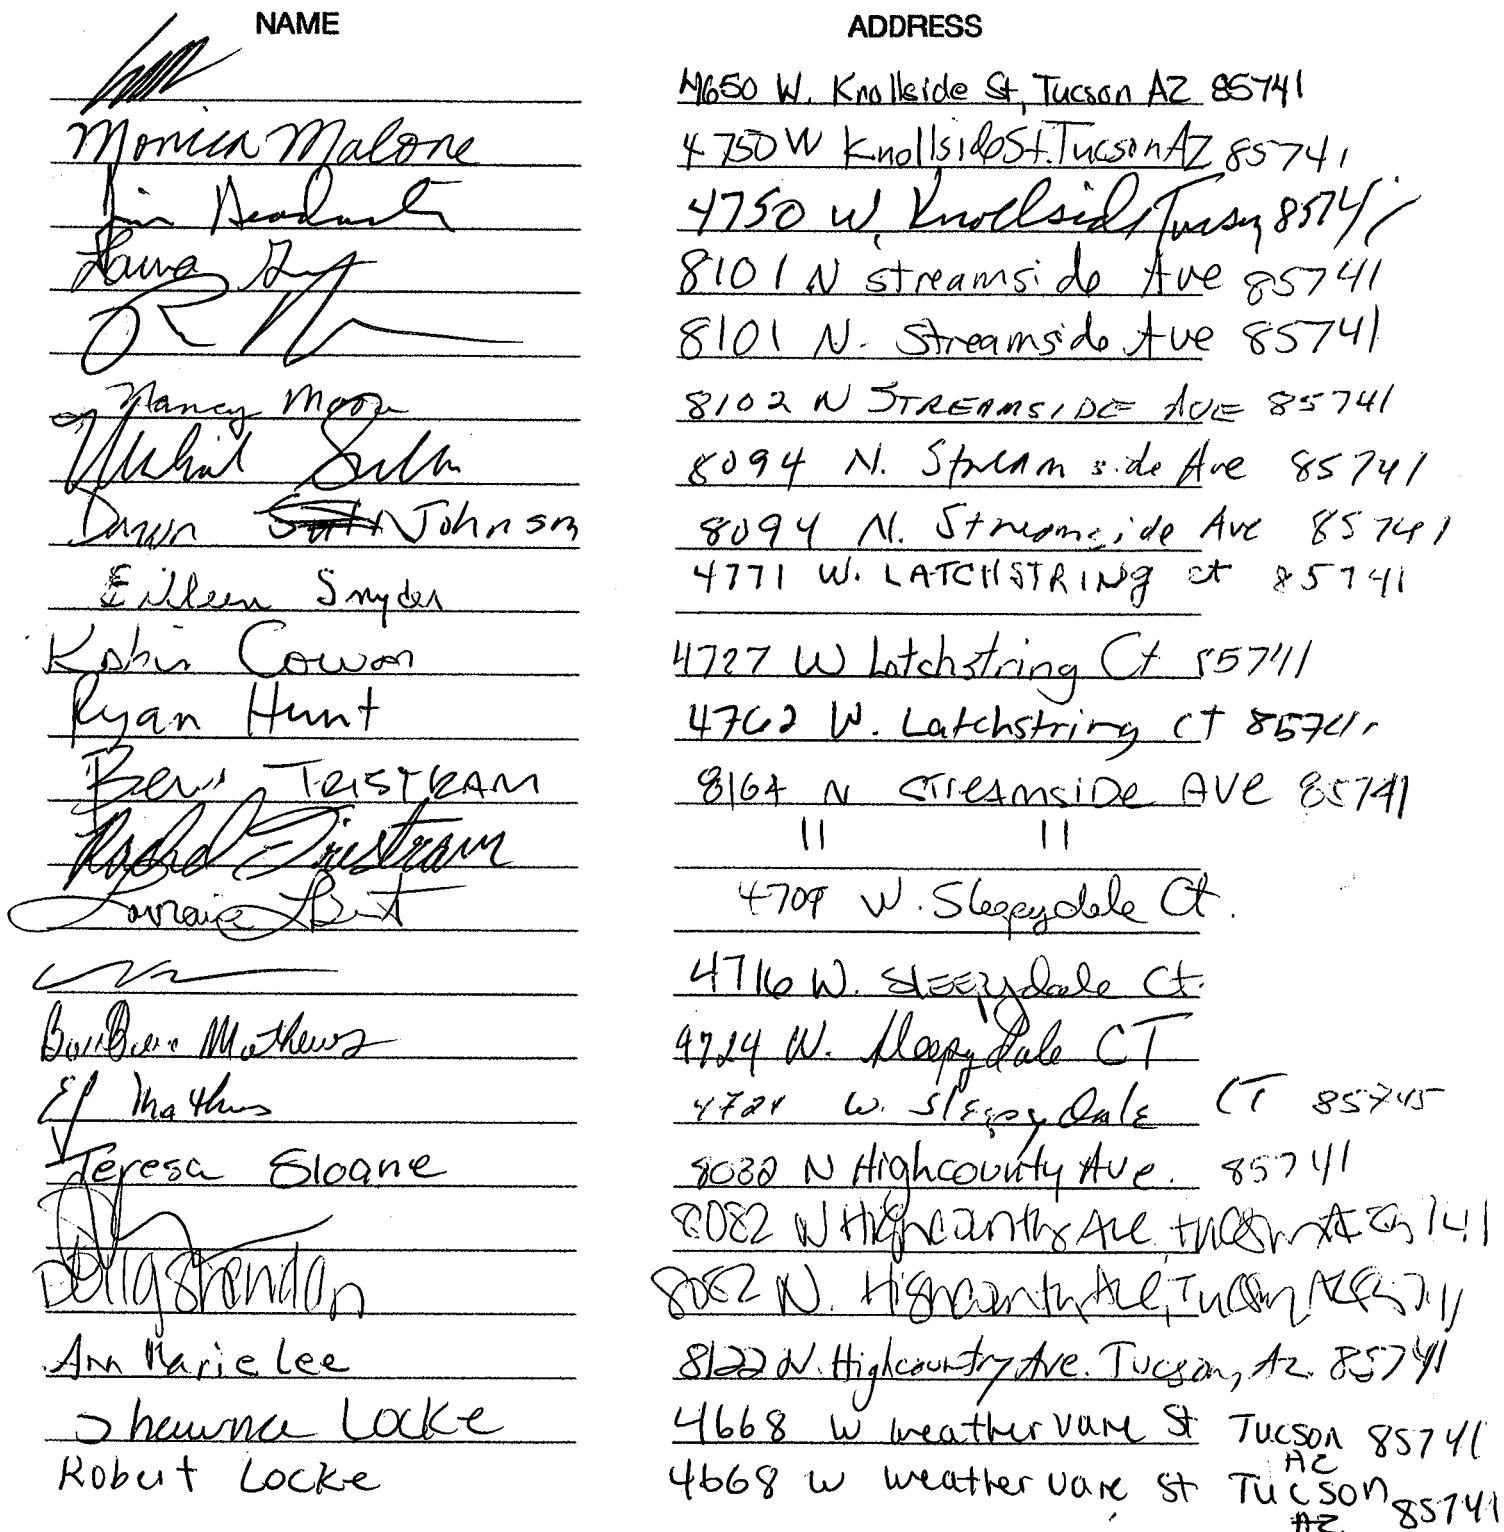 NAME ADDRESS
4650 W. Knollside St, Tucson AZ 85741
Monica Malone 4750 W Knollside St. Tucson AZ 85741
Jim 4750 W. Knollside Tucson 85741
Laura 8101 N Streamside Ave 85741
8101 N. Streamside Ave 85741
Nancy Moore 8102 N STREAMSIDE AVE 85741
Michael 8094 N. Streamside Ave 85741
Dawn Johnson 8094 N. Streamside Ave 85741
Eileen Snyder 4771 W. LATCHSTRING ct 85741
Robin Cowan 4727 W Latchstring Ct 85741
Ryan Hunt 4762 W. Latchstring CT 85741
Ben TRISTRAM 8164 N STREAMSIDE AVE 85741
Rachel Tristram 11 11
Lorraine 4709 W. Sleepydale Ct.
4716 W. SLEEPYdale Ct.
Barbara Mathews 4724 W. Sleepydale CT
Ed Mathews 4724 W. Sleepydale CT 85745
Teresa Sloane 8082 N Highcounty Ave. 85741
8082 N Highcountry Ave, Tucson AZ 85741
8082 N. Highcountry Ave, Tucson AZ 85741
Ann Marie Lee 8122 N. Highcountry Ave. Tucson, Az. 85741
Shawna Locke 4668 W Weathervane St Tucson AZ 85741
Robert Locke 4668 W Weathervane St Tucson AZ 85741